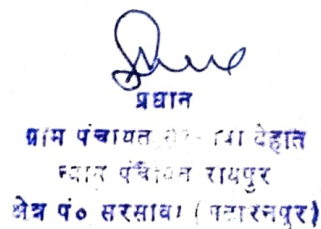 प्रधान
ग्राम पंचायत देहात
न्याय पंचायत रायपुर
क्षेत्र पं० सरसावा (सहारनपुर)